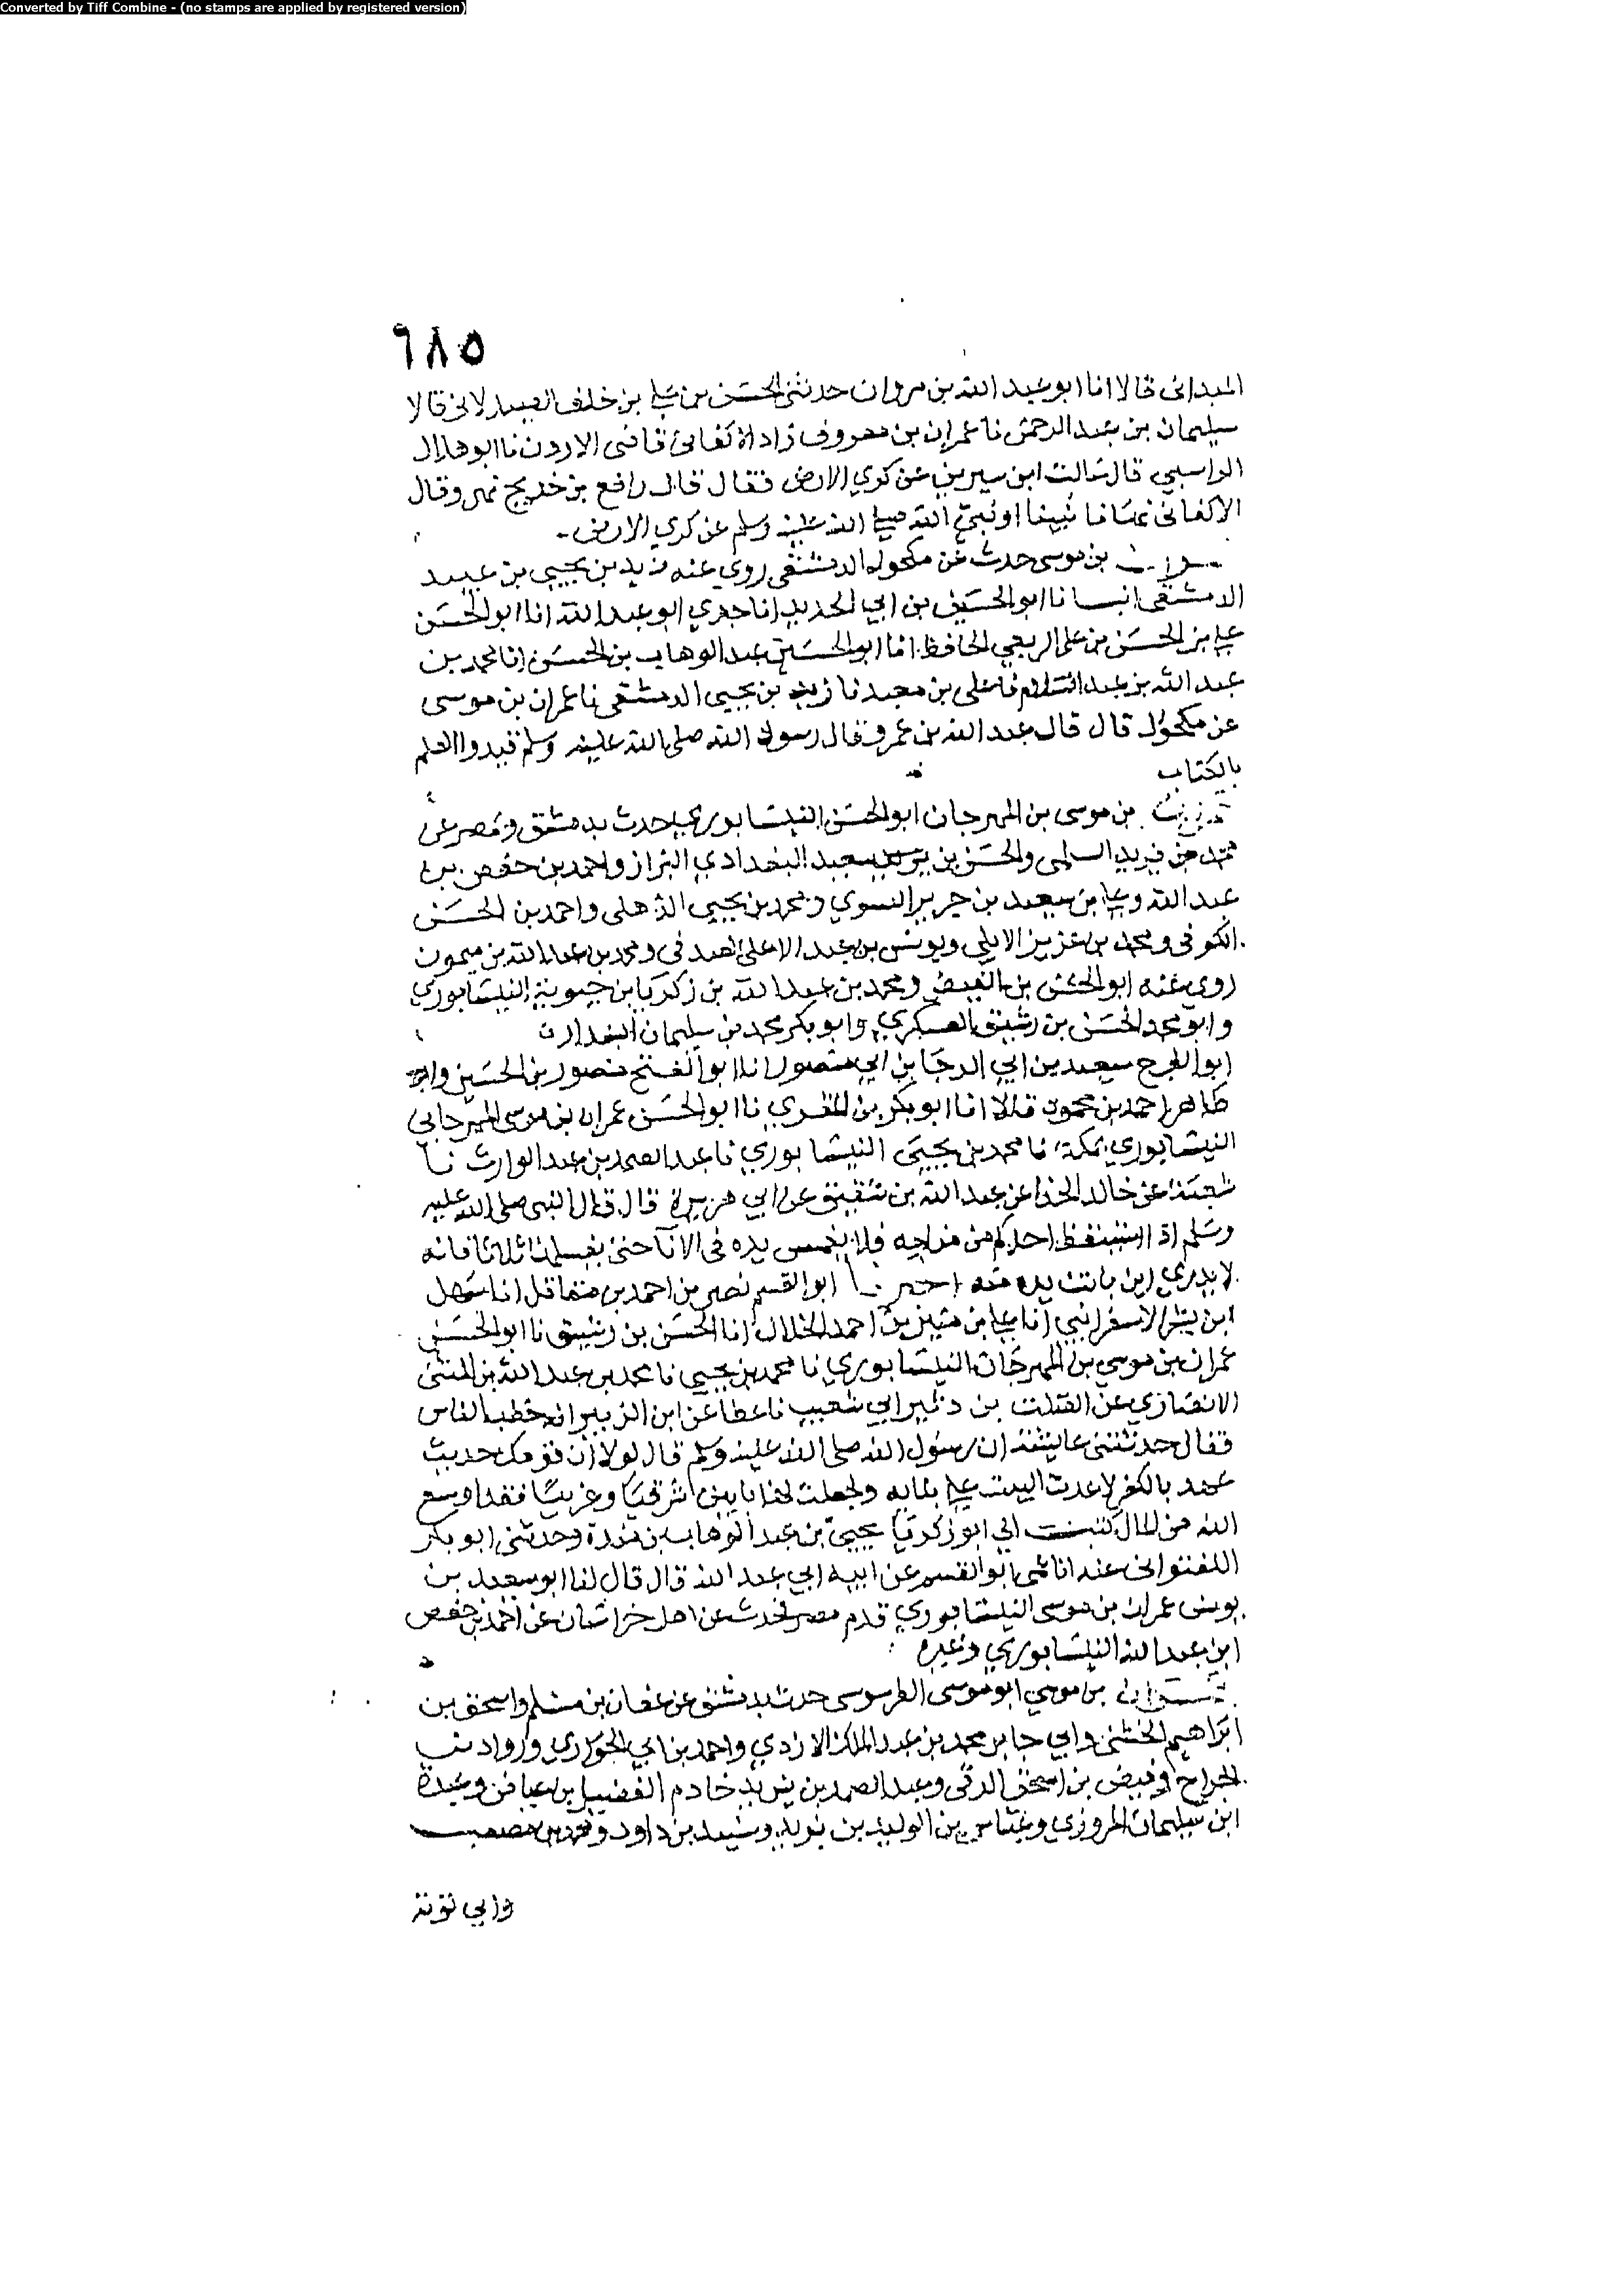 Converted by Tiff Combine - (no stamps are applied by registered version)
٦٨٥
الميدانى قالا انا ابو عبد الله بن مروان حدثنى الحسن بن علي بن خلف الصيدلانى قالا
سليمان بن عبد الرحمن نا عمران بن معروف زاد الاكفانى قاضى الاردن نا ابو هلال
الراسبي قال سالت ابن سيرين عن كري الارض فقال قال رافع بن خديج نهى وقال
الاكفانى نهانا نبينا او نبي الله صلى الله عليه وسلم عن كري الارض
بن موسى حدث عن مكحول الدمشقى روى عنه زيد بن يحيى بن عبيد
الدمشقى انبانا ابو الحسين بن ابي الحديد انا جدي ابو عبد الله انا ابو الحسن
علي بن الحسن بن علي الربعي الحافظ انا ابو الحسين عبد الوهاب بن الحسن انا محمد بن
عبد الله بن عبد السلام نا على بن معبد نا زيد بن يحيى الدمشقى نا عمران بن موسى
عن مكحول قال قال عبد الله بن عمرو قال رسول الله صلى الله عليه وسلم قيدوا العلم
بالكتاب
بن موسى بن المهرجان ابو الحسن النيسابوري حدث بدمشق ومصر عن
محمد بن يزيد السلمى والحسن بن سعيد البغدادي البزاز واحمد بن حفص بن
عبد الله وعلي بن سعيد بن جرير النسوي ومحمد بن يحيى الذهلى واحمد بن الحسن
الكوفى ومحمد بن عزيز الايلي ويونس بن عبد الاعلى الصدفى ومحمد بن عبد الله بن ميمون
روى عنه ابو الحسن بن الفيض ومحمد بن عبد الله بن زكريا بن حيوية النيسابوري
وابو محمد الحسن بن رشيق العسكري وابو بكر محمد بن سليمان البندار
ابو الفرج سعيد بن ابي الرجا بن ابي منصور انا ابو الفتح منصور بن الحسين وابو
طاهر احمد بن محمود قالا انا ابو بكر بن المقري نا ابو الحسن عمران بن موسى المهرجاني
النيسابوري بمكة نا محمد بن يحيى النيسابوري نا عبد الصمد بن عبد الوارث نا
شعبة عن خالد الحذا عن عبد الله بن شقيق عن ابي هريرة قال قال النبى صلى الله عليه
وسلم اذا استيقظ احدكم من منامه فلا يغمس يده فى الانا حتى يغسلها ثلاثا فانه
لا يدري اين باتت يده منه اخبرنا ابو القسم نصر بن احمد بن مقاتل انا سهل
ابن بشر الاسفرايني انا علي بن منير بن احمد الخلال انا الحسن بن رشيق نا ابو الحسن
عمران بن موسى بن المهرجان النيسابوري نا محمد بن يحيى نا محمد بن عبد الله بن المثنى
الانصاري عن الصلت بن دينار ابي شعيب نا عطا عن ابن الزبير انه خطب الناس
فقال حدثتنى عايشة ان رسول الله صلى الله عليه وسلم قال لولا ان قومك حديث
عهد بالكفر لاعدت البيت على بنايه ولجعلت له بابين شرقيا وغربيا فقد اوسع
الله من المال كتب الي ابو زكريا يحيى بن عبد الوهاب بن مندة وحدثنى ابو بكر
اللفتوانى عنه انا عمى ابو القسم عن ابيه ابي عبد الله قال قال لنا ابو سعيد بن
يونس عمران بن موسى النيسابوري قدم مصر فحدث عن اهل خراسان عن احمد بن حفص
ابن عبد الله النيسابوري وغيره
بن موسى ابو موسى الطرسوسى حدث بدمشق عن عفان بن مسلم واسحق بن
ابراهيم الحنينى وابي جابر محمد بن عبد الملك الازدي واحمد بن ابي الحواري ورواد بن
الجراح وفيض بن اسحق الرقى وعبد الصمد بن يزيد خادم الفضيل بن عياض وعبدة
ابن سليمان المروزي وعباس بن الوليد بن مزيد وسنيد بن داود ومحمد بن مصعب
وابي توبة